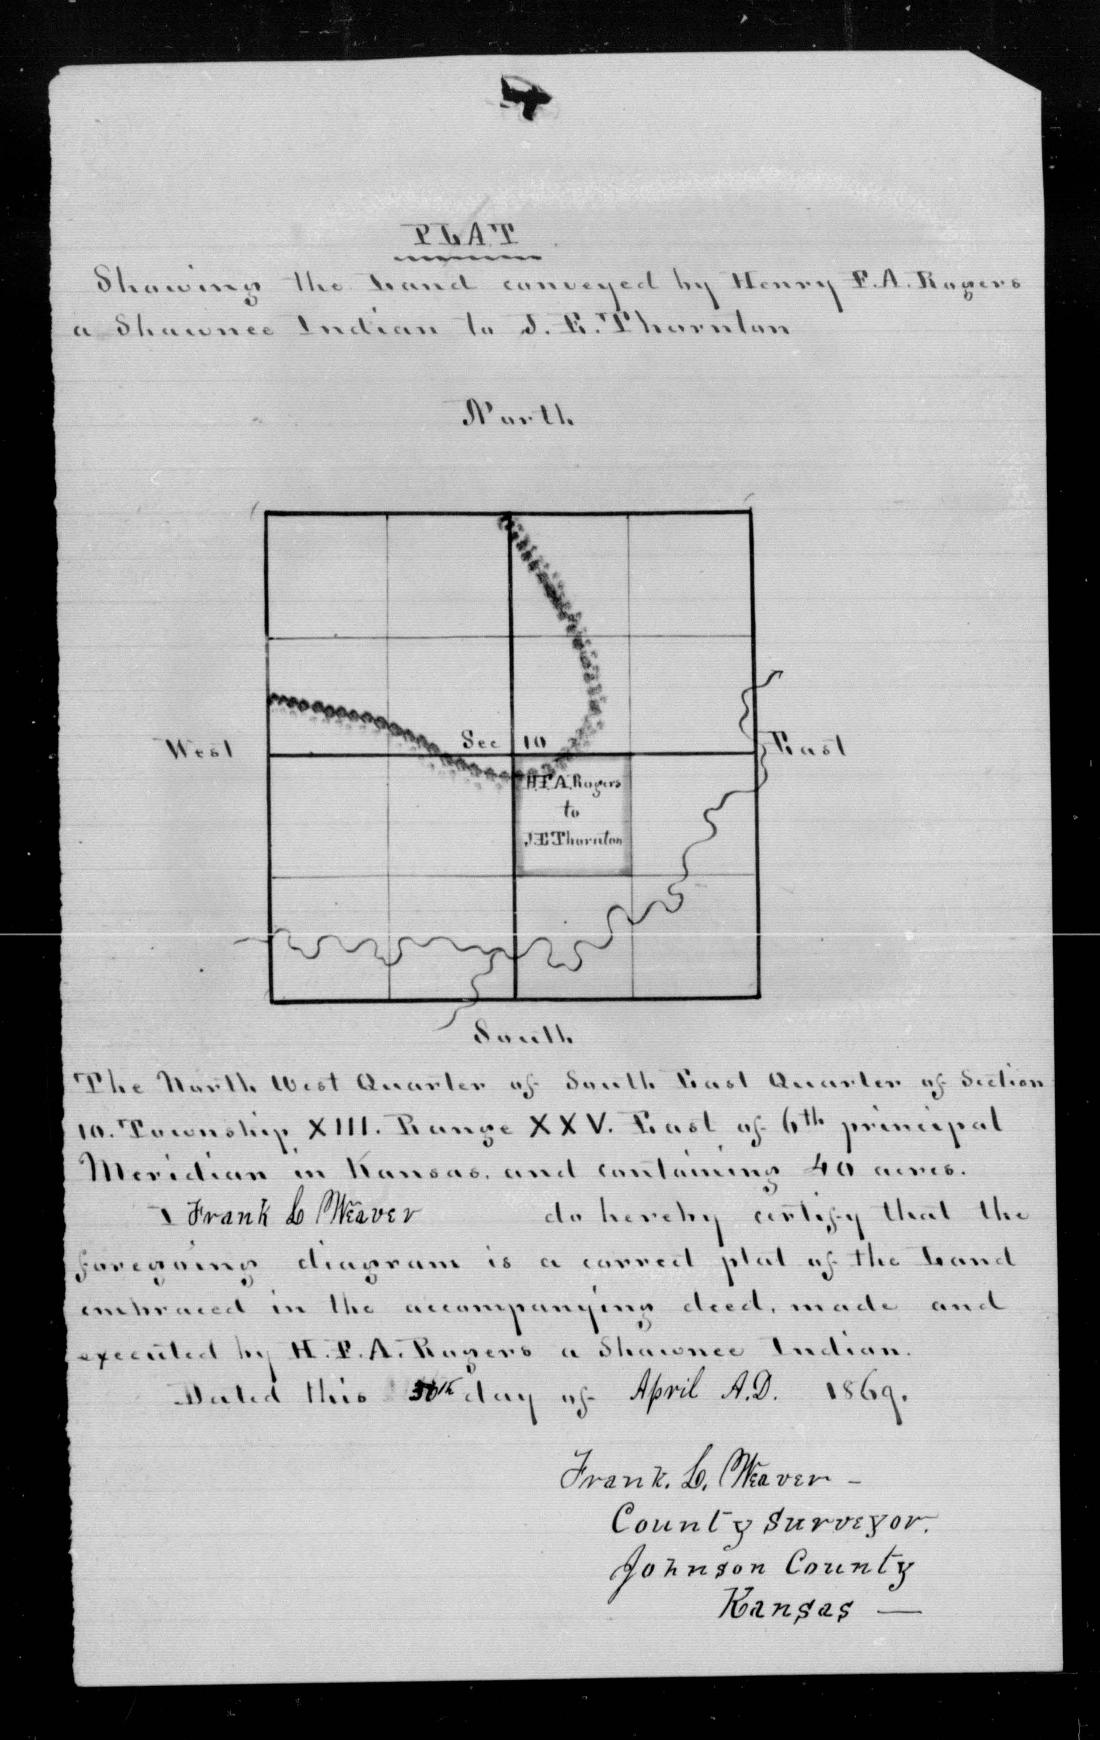 PLAT
Showing the Land conveyed by Henry F.A. Rogers
a Shawnee Indian to J. E. Thornton
North
West
Sec 10
East
H.F.A. Rogers
to
J E Thornton
South
The North West Quarter of South East Quarter of Section
10. Township XIII. Range XXV. East of 6th principal
Meridian in Kansas, and containing 40 acres.
I Frank L Weaver do hereby certify that the
foregoing diagram is a correct plat of the Land
embraced in the accompanying deed, made and
executed by H.F.A. Rogers a Shawnee Indian.
Dated this 30th day of April A.D. 1869.
Frank. L. Weaver -
County Surveyor.
Johnson County
Kansas —